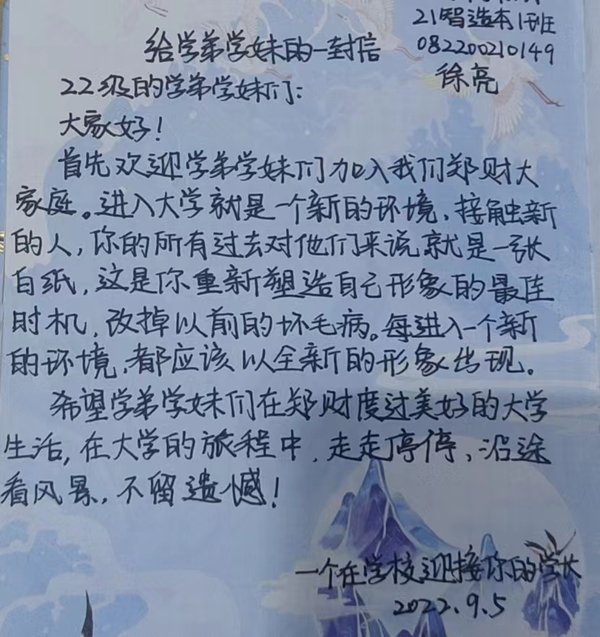 21智造本1班
给学弟学妹的一封信
082200210149
徐亮
22级的学弟学妹们:
大家好!
首先欢迎学弟学妹们加入我们郑财大
家庭。进入大学就是一个新的环境,接触新
的人,你的所有过去对他们来说就是一张
白纸,这是你重新塑造自己形象的最佳
时机,改掉以前的坏毛病。每进入一个新
的环境,都应该以全新的形象出现。
希望学弟学妹们在郑财度过美好的大学
生活,在大学的旅程中,走走停停,沿途
看风景,不留遗憾!
一个在学校迎接你的学长
2022.9.5